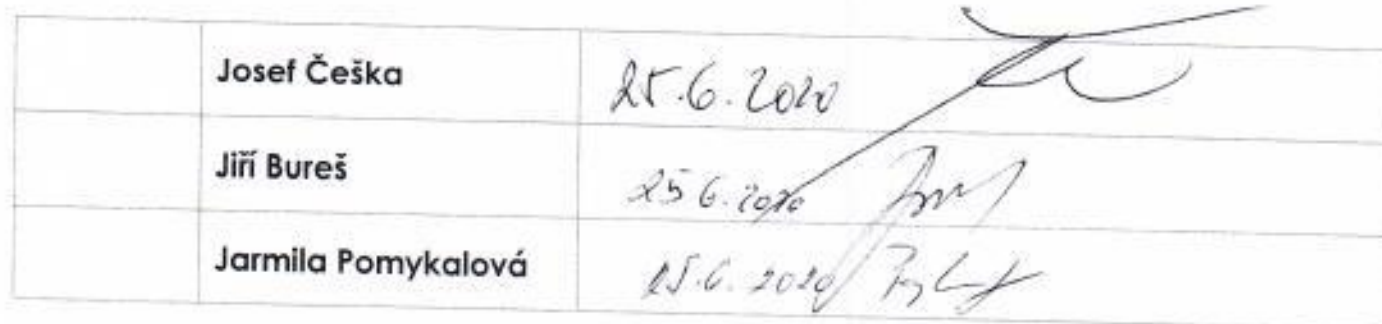 Josef Češka 25.6.2020
Jiří Bureš 25 6. 2020
Jarmila Pomykalová 25.6. 2020